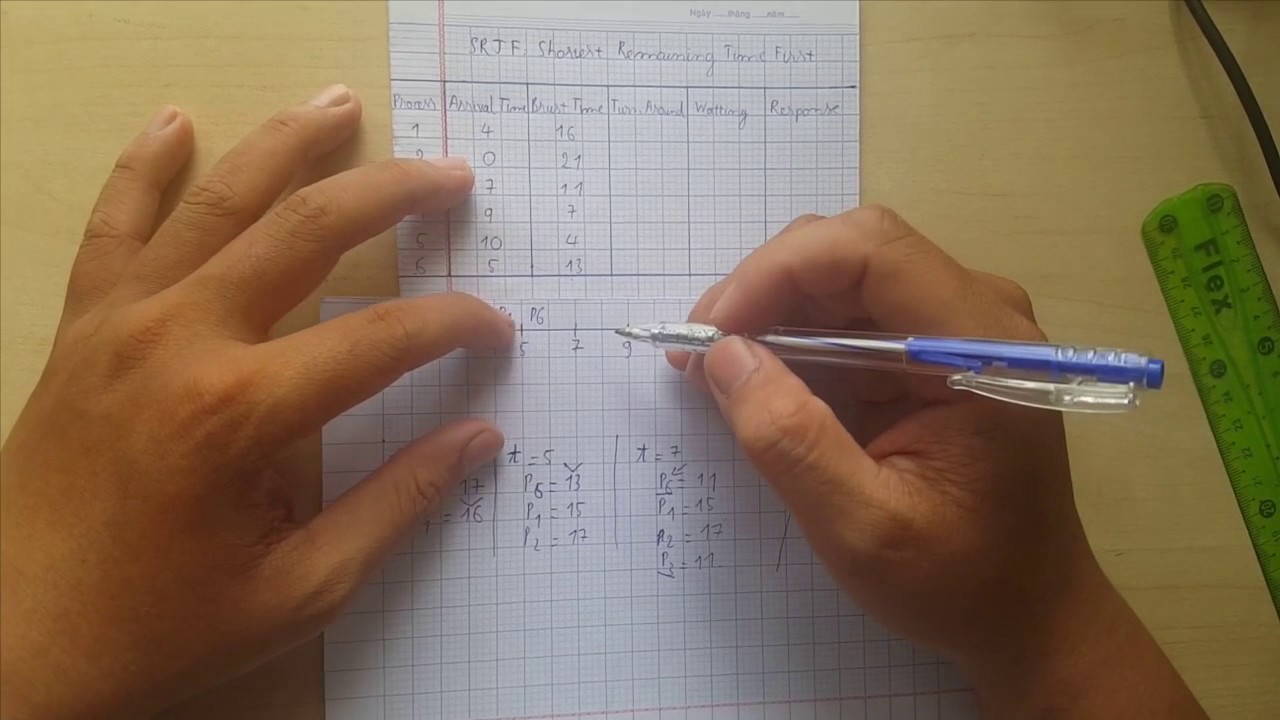 Ngày tháng năm
SRJF: Shortest Remaining Time First
Process Arrival Time Brust Time Turn Around Waitting Response
1 4 16
2 0 21
7 11
9 7
5 10 4
6 5 13
P6
5 7 9
t = 5 t = 7
17 P6 = 13 P6 = 11
= 16 P1 = 15 P1 = 15
P2 = 17 P2 = 17
P3 = 11
Flex